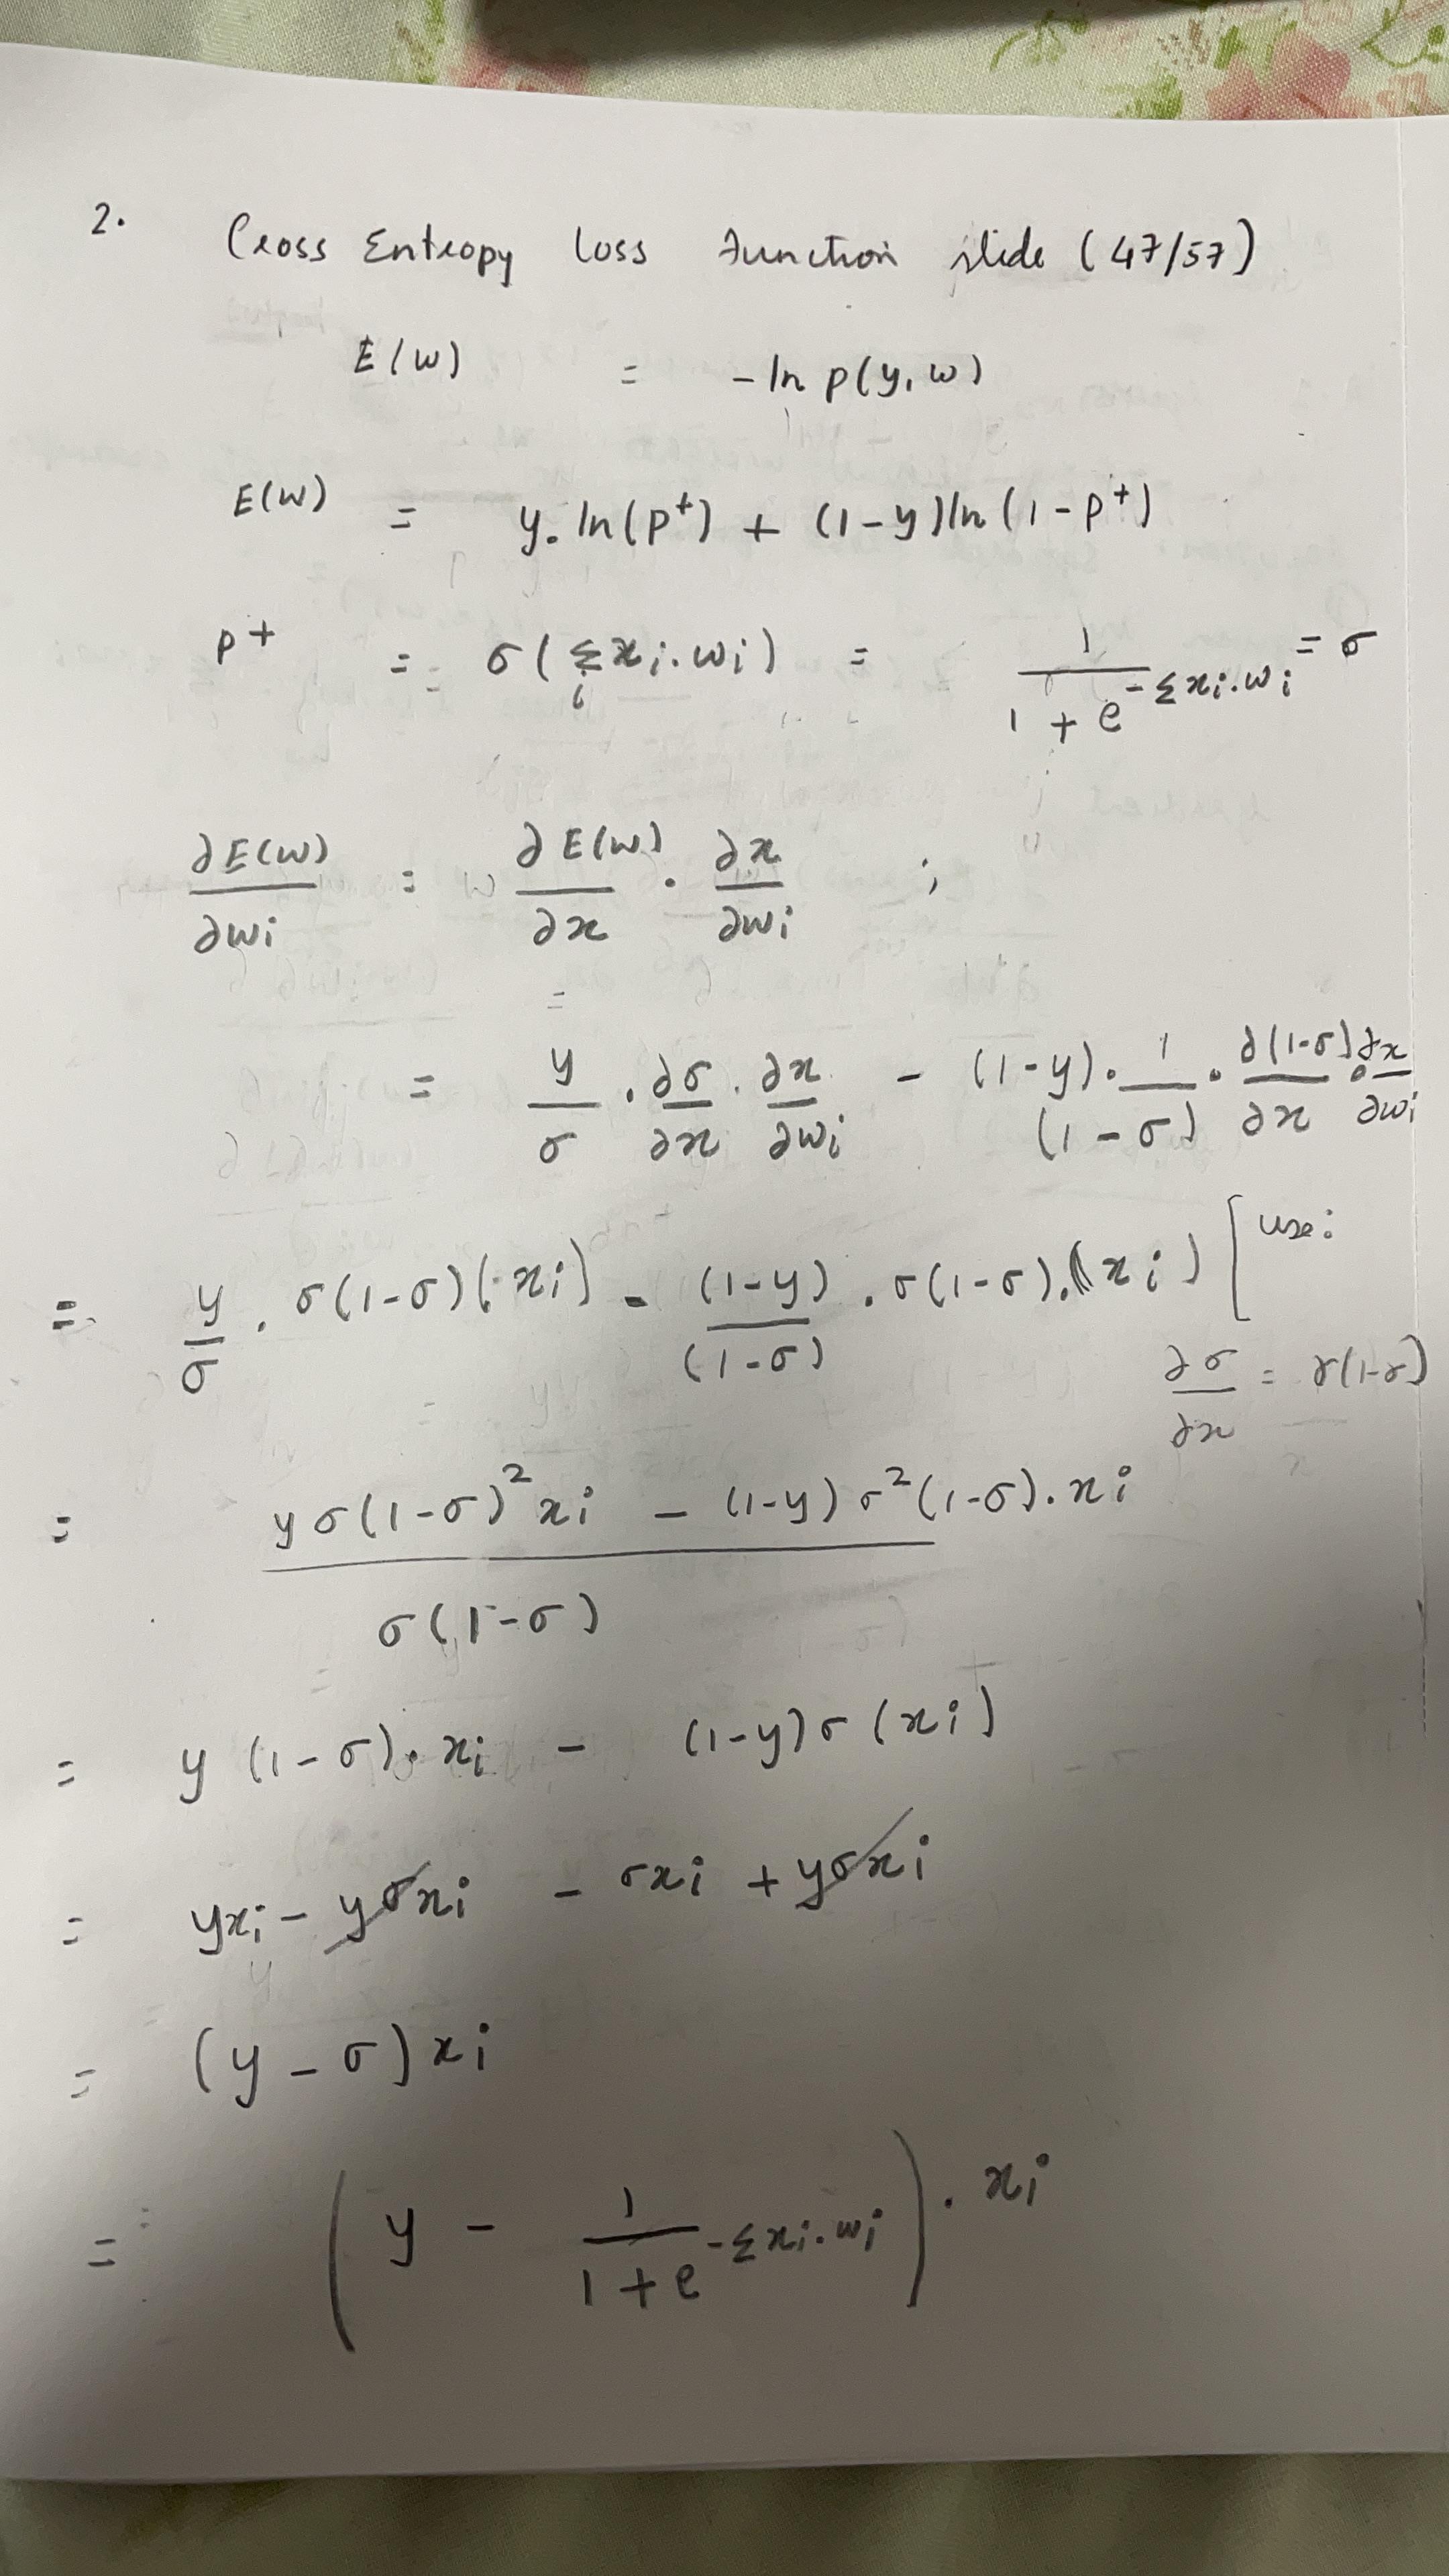 2. Cross Entropy loss function slide (47/57)
E(w) = - ln p(y, w)
E(w) = y. ln(p⁺) + (1-y) ln(1-p⁺)
p⁺ = σ(Σᵢ xᵢ.wᵢ) = 1/(1+e^(-Σxᵢ.wᵢ)) = σ
∂E(w)/∂wᵢ = ∂E(w)/∂x . ∂x/∂wᵢ ;
= y/σ . ∂σ/∂x . ∂x/∂wᵢ - (1-y). 1/(1-σ) . ∂(1-σ)/∂x . ∂x/∂wᵢ
= y/σ . σ(1-σ)(xᵢ) - (1-y)/(1-σ) . σ(1-σ).(xᵢ) [use:
∂σ/∂x = σ(1-σ)
= (yσ(1-σ)²xᵢ - (1-y)σ²(1-σ).xᵢ)/(σ(1-σ))
= y(1-σ).xᵢ - (1-y)σ(xᵢ)
= yxᵢ - yσxᵢ - σxᵢ + yσxᵢ
= (y - σ)xᵢ
= (y - 1/(1+e^(-Σxᵢ.wᵢ))) . xᵢ